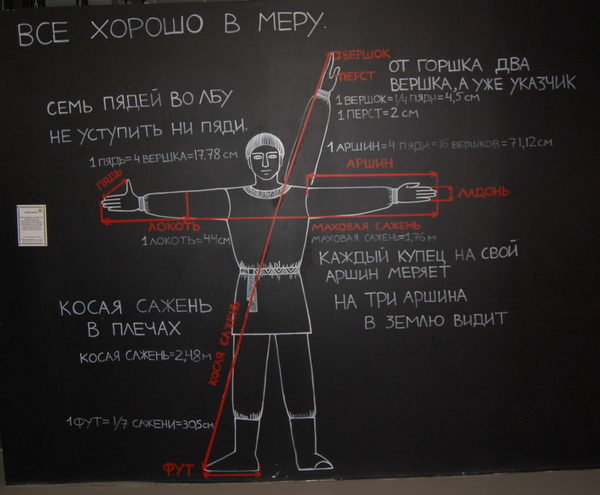 ВСЕ ХОРОШО В МЕРУ.
ВЕРШОК
ПЕРСТ
ОТ ГОРШКА ДВА
ВЕРШКА, А УЖЕ УКАЗЧИК
1 ВЕРШОК=1/4 ПЯДИ=4,5 СМ
1 ПЕРСТ=2 СМ
СЕМЬ ПЯДЕЙ ВО ЛБУ
НЕ УСТУПИТЬ НИ ПЯДИ.
1 ПЯДЬ=4 ВЕРШКА=17.78 СМ
1 АРШИН=4 ПЯДИ=16 ВЕРШКОВ=71,12 СМ
АРШИН
ПЯДЬ
ЛАДОНЬ
ЛОКОТЬ
1 ЛОКОТЬ=44СМ
МАХОВАЯ САЖЕНЬ
МАХОВАЯ САЖЕНЬ=1,76 М
КАЖДЫЙ КУПЕЦ НА СВОЙ
АРШИН МЕРЯЕТ
НА ТРИ АРШИНА
В ЗЕМЛЮ ВИДИТ
КОСАЯ САЖЕНЬ
В ПЛЕЧАХ
КОСАЯ САЖЕНЬ=2,48 М
КОСАЯ САЖЕНЬ
1 ФУТ=1/7 САЖЕНИ=305СМ
ФУТ